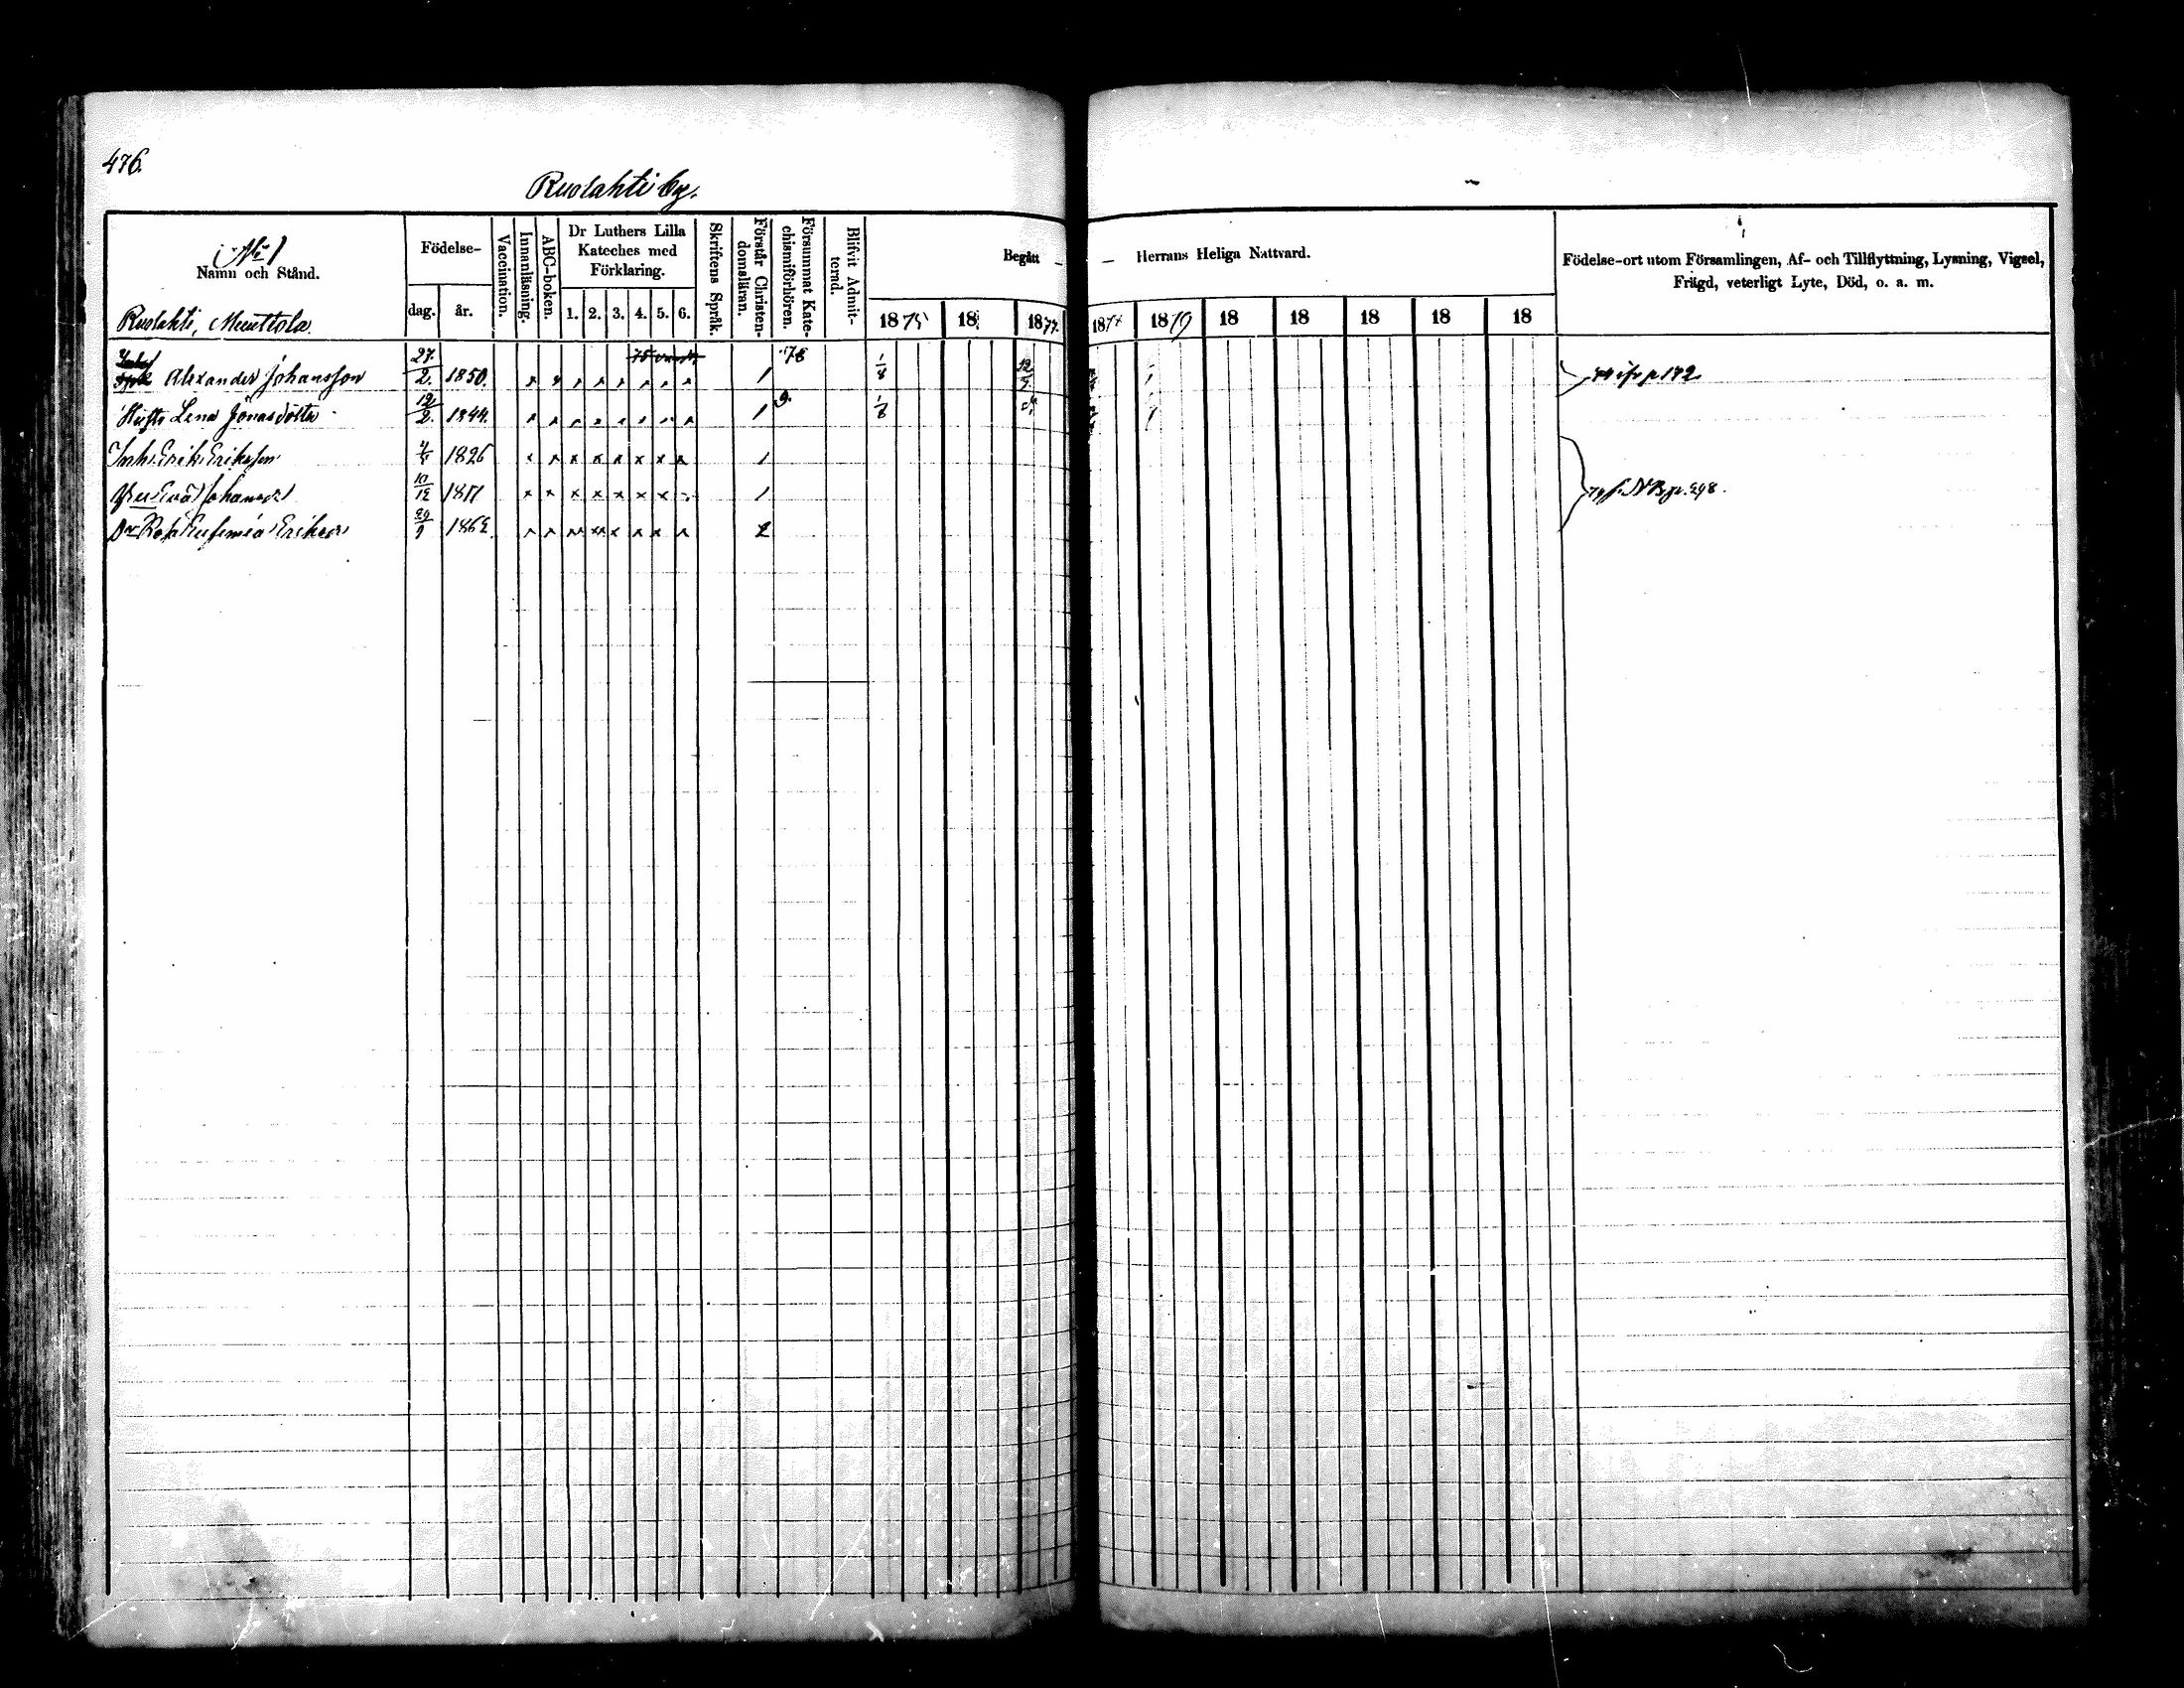 476.
Ruolahti by.
No 1
Namn och Stånd.
Födelse-
dag.
år.
Vaccination.
Innanläsning.
ABC-boken.
Dr Luthers Lilla
Kateches med
Förklaring.
1. 2. 3. 4. 5. 6.
Skriftens Språk.
Förstår Christen-
domsläran.
Försummat Kate-
chismiförhören.
Blifvit Admit-
terad.
Begått
Herrans Heliga Nattvard.
1875 18 1877 187 1879 18 18 18 18 18
Födelse-ort utom Församlingen, Af- och Tillflyttning, Lysning, Vigsel,
Frägd, veterligt Lyte, Död, o. a. m.
Ruolahti, Muuttola.
Alexander Johansson 27/2. 1850. 1 78 1/8
Hustr Lena Jonasdotter 12/2. 1844. 1 9. 1/8
Inh. Erik Eriksson 1826 1
Eva Johansdr 10/12 1
Rosa Eufemia Eriksdr 1862 2
p 172